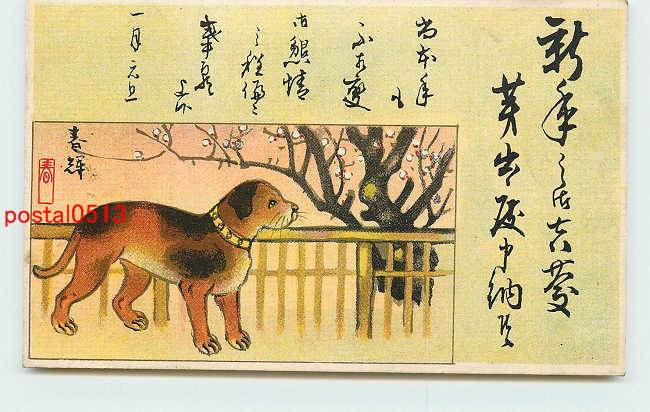 新年之御吉慶
芽出度申納候
尚本年も
不相変
御懇情
之程偏ニ
奉冀
上候
一月元旦
春輝
春
postal0513